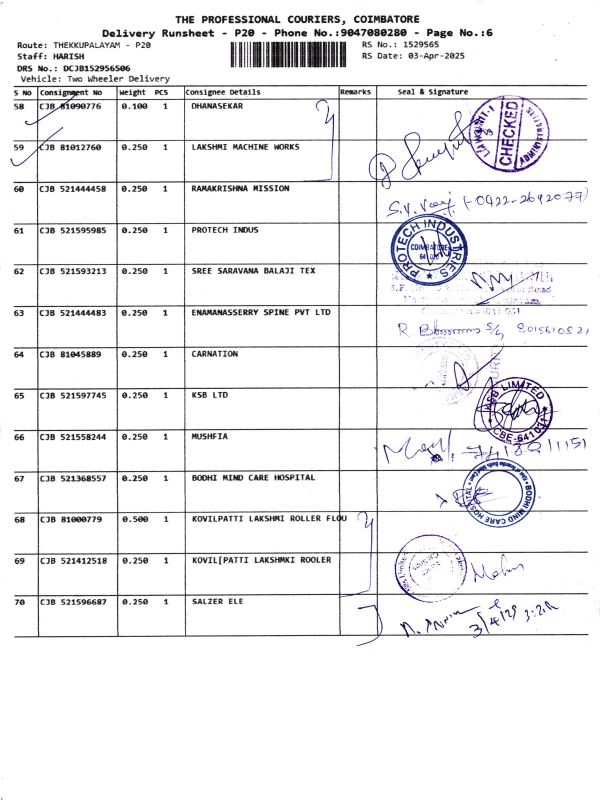 THE PROFESSIONAL COURIERS, COIMBATORE
Delivery Runsheet - P20 - Phone No.:9047080280 - Page No.:6
Route: THEKKUPALAYAM - P20 RS No.: 1529565
Staff: HARISH RS Date: 03-Apr-2025
DRS No.: DCJB152956506
Vehicle: Two Wheeler Delivery
S No Consignment No Weight PCS Consignee Details Remarks Seal & Signature
58 CJB 81090776 0.100 1 DHANASEKAR
CHECKED
59 CJB 81012760 0.250 1 LAKSHMI MACHINE WORKS
60 CJB 521444458 0.250 1 RAMAKRISHNA MISSION
(-0422-2692077)
61 CJB 521595985 0.250 1 PROTECH INDUS
PROTECH INDUSTRIES
COIMBATORE
62 CJB 521593213 0.250 1 SREE SARAVANA BALAJI TEX
63 CJB 521444483 0.250 1 ENAMANASSERRY SPINE PVT LTD
64 CJB 81045889 0.250 1 CARNATION
65 CJB 521597745 0.250 1 KSB LTD
KSB LIMITED
66 CJB 521558244 0.250 1 MUSHFIA
67 CJB 521368557 0.250 1 BODHI MIND CARE HOSPITAL
BODHI MIND CARE HOSPITAL
68 CJB 81000779 0.500 1 KOVILPATTI LAKSHMI ROLLER FLOU
69 CJB 521412518 0.250 1 KOVIL[PATTI LAKSHMKI ROOLER
70 CJB 521596687 0.250 1 SALZER ELE